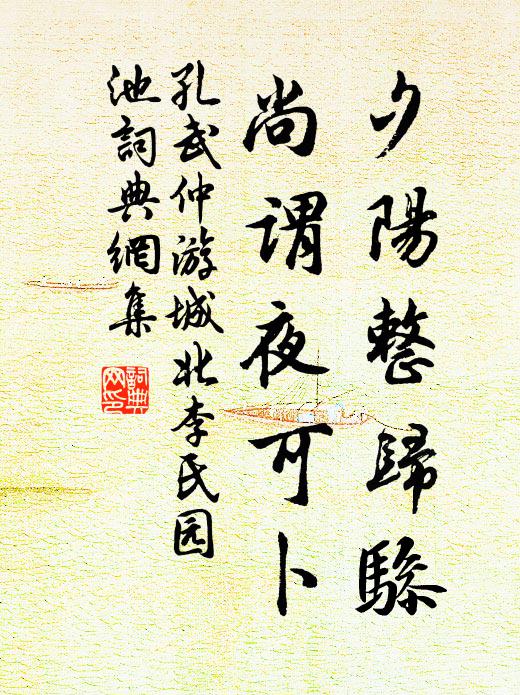 夕陽整歸驂
尚謂夜可卜
孔武仲游城北李氏园
池詞典網集
詞典网印